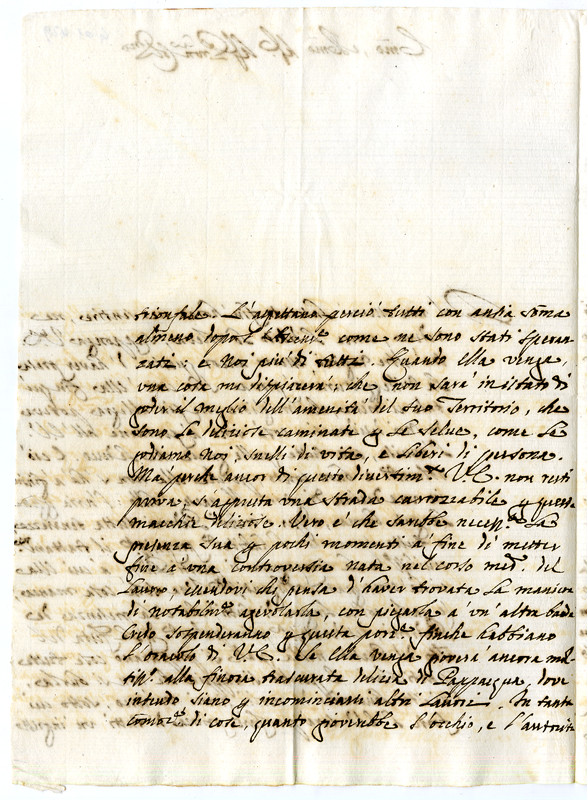 trionfale. L'aspettano perciò tutti con ansia som̃a
almeno dopo l' come ne sono stati speran
zati: e Noi più di tutti. Quanto ella venga,
una cosa mi dispiacerà, che non sarà in istato di
goder il meglio dell'amenità del suo Territorio, che
sono le deliziose caminate p le selve, come le
godiamo Noi, snelli di vita, e liberi di persona.
Mà perche ancor di questo divertim.to V.E. non resti
priva, s'appresta una strada carrozzabile p queste
macchie deliziose. Vero è che sarebbe necess.ria la
presenza sua p pochi momenti à fine di metter
fine à una controversia nata nel corso med.o del
Lauoro, essendovi chi pensa d'haver trovata la maniera
di notabilm.te agevolarla, con piegarla a un'altra banda
Credo sospenderanno p questa parte finche habbiano
l'oracolo di V.E. Se ella venga goderà ancora mol
tiss.o alla finora trascurata delizia di , dove
intendo siano p incominciarsi altri Lauori. In tanta
di cose, quanto gioverebbe l'occhio, e l'autorità